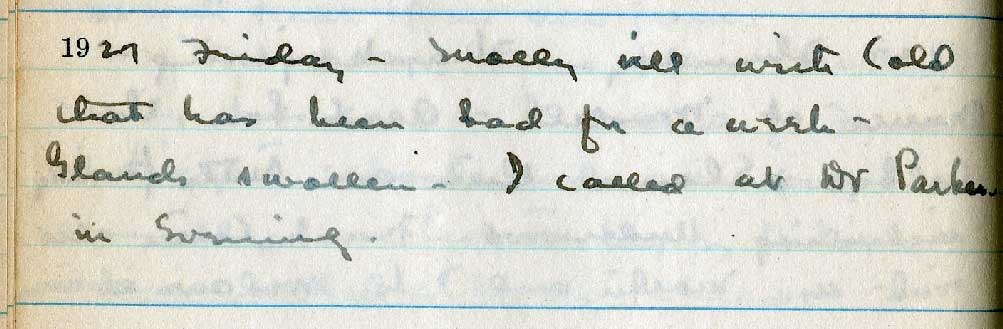 1927 Friday - Molly ill with Cold
that has been bad for a week -
Glands swollen - I called at Dr Parker
in Evening.